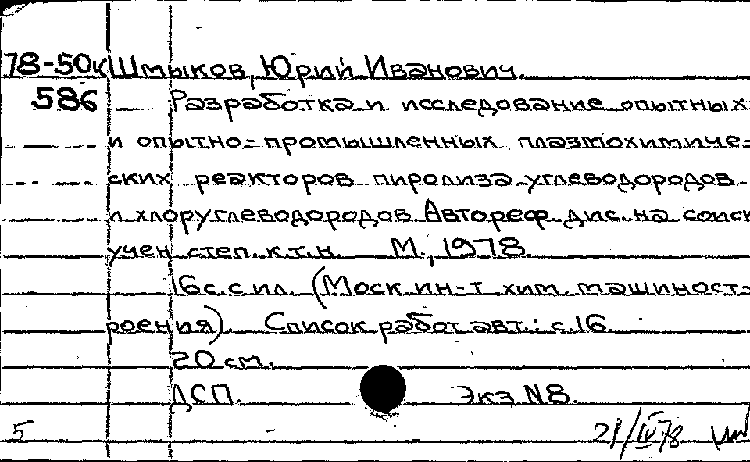 78-50к Шмыков, Юрий Иванович.
586 Разработка и исследование опытных
и опытно-промышленных плазмохимиче-
ских реакторов пиролиза углеводородов
и хлоруглеводородов. Автореф. дис. на соиск
учен. степ. к.т.н. М., 1978.
16 с. с ил. (Моск. ин-т хим. машиност-
роения). Список работ авт.: с. 16.
20 см.
ДСП. Экз N8.
5 21/IV 78